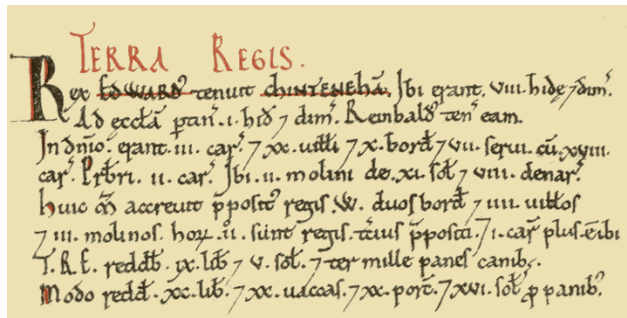 TERRA REGIS.
Rex EDWARD᾽ tenuit CHINTENEHĀ. Ibi erant. viii. hidę ⁊ dim᾽.
Ad ęccłam ptin᾽. i. hid ⁊ dim᾽. Reinbald᾽ ten᾽ eam.
In dn̄io. erant. iii. car᾽. ⁊ xx. uiłłi ⁊ x. bord ⁊ vii. serui. cū. xviii.
car᾽. Prb̄ri. ii. car᾽. Ibi. ii. molini de. xi. soł ⁊ viii. denar᾽.
Huic m̄ accreuit p̄posit᾽ regis. W. duos bord ⁊ iiii. uiłłos
⁊ iii. molinos. hoꝝ. ii. sunt regis. t̄cius p̄positi. ⁊ i. car᾽ plus. ē ibi
T. R. E. reddb̄. ix. lib̄ ⁊ v. soł. ⁊ ter mille panes canib᾽.
Modo redd̄. xx. lib̄. ⁊ xx. uaccas. ⁊ xx. porc᾽. ⁊ xvi. soł ꝓ panib᾽.